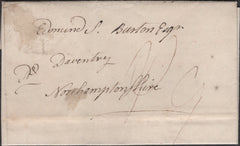 Edmund S. Burton Esqr
Daventry
Northamptonshire